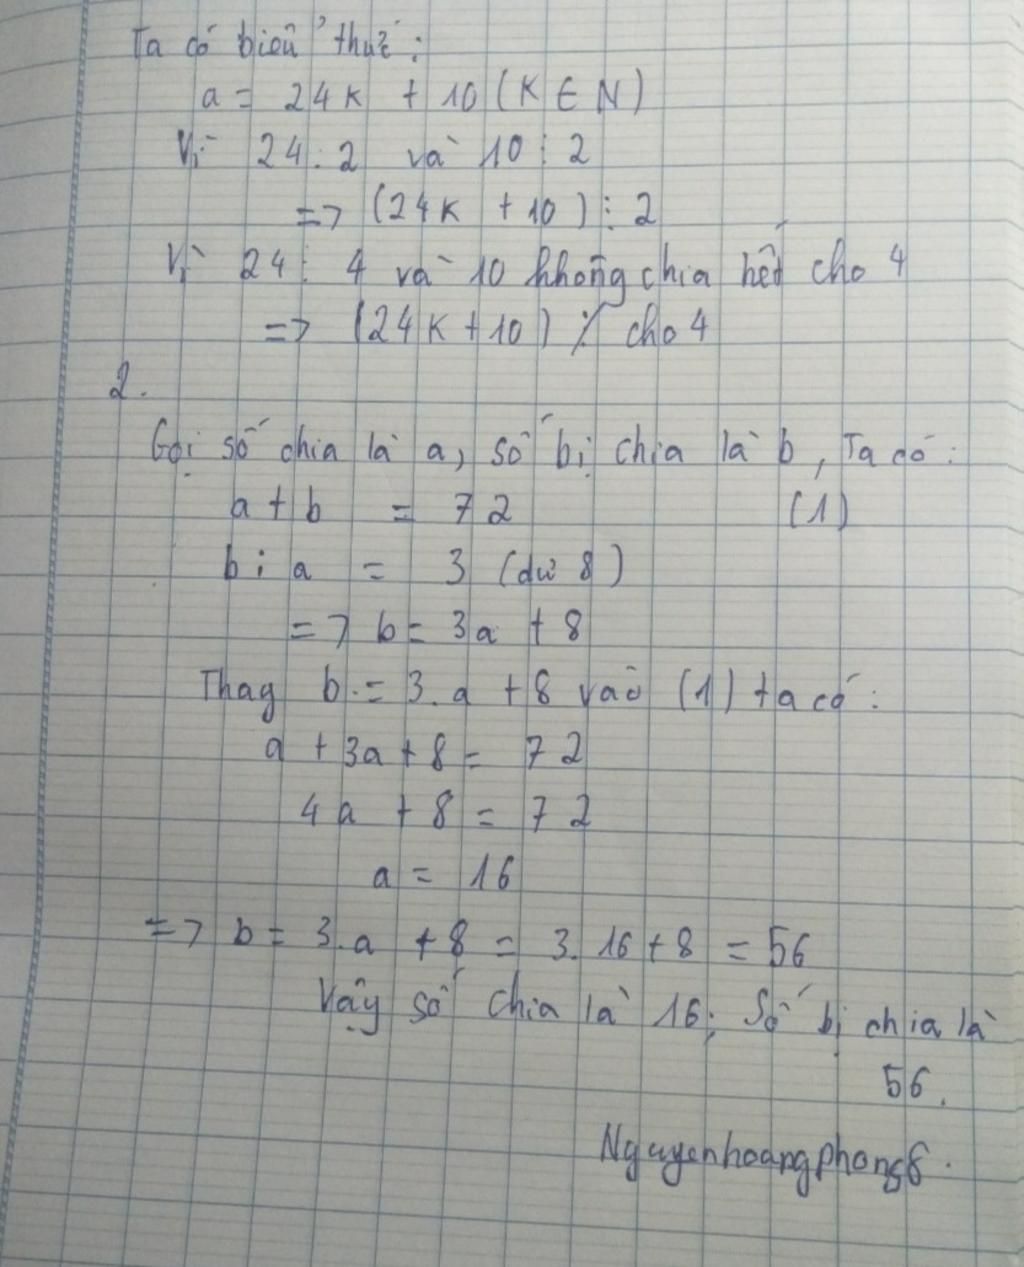 Ta có biểu thức:
a = 24k + 10 (K ∈ N)
Vì 24 ⋮ 2 và 10 ⋮ 2
=> (24k + 10) ⋮ 2
Vì 24 ⋮ 4 và 10 không chia hết cho 4
=> (24k + 10) ⋮̸ cho 4
2.
Gọi số chia là a, số bị chia là b, Ta có:
a + b = 72 (1)
b : a = 3 (dư 8)
=> b = 3a + 8
Thay b = 3.a + 8 vào (1) ta có:
a + 3a + 8 = 72
4a + 8 = 72
a = 16
=> b = 3.a + 8 = 3.16 + 8 = 56
Vậy số chia là 16; Số bị chia là
56.
Nguyenhoangphong8.